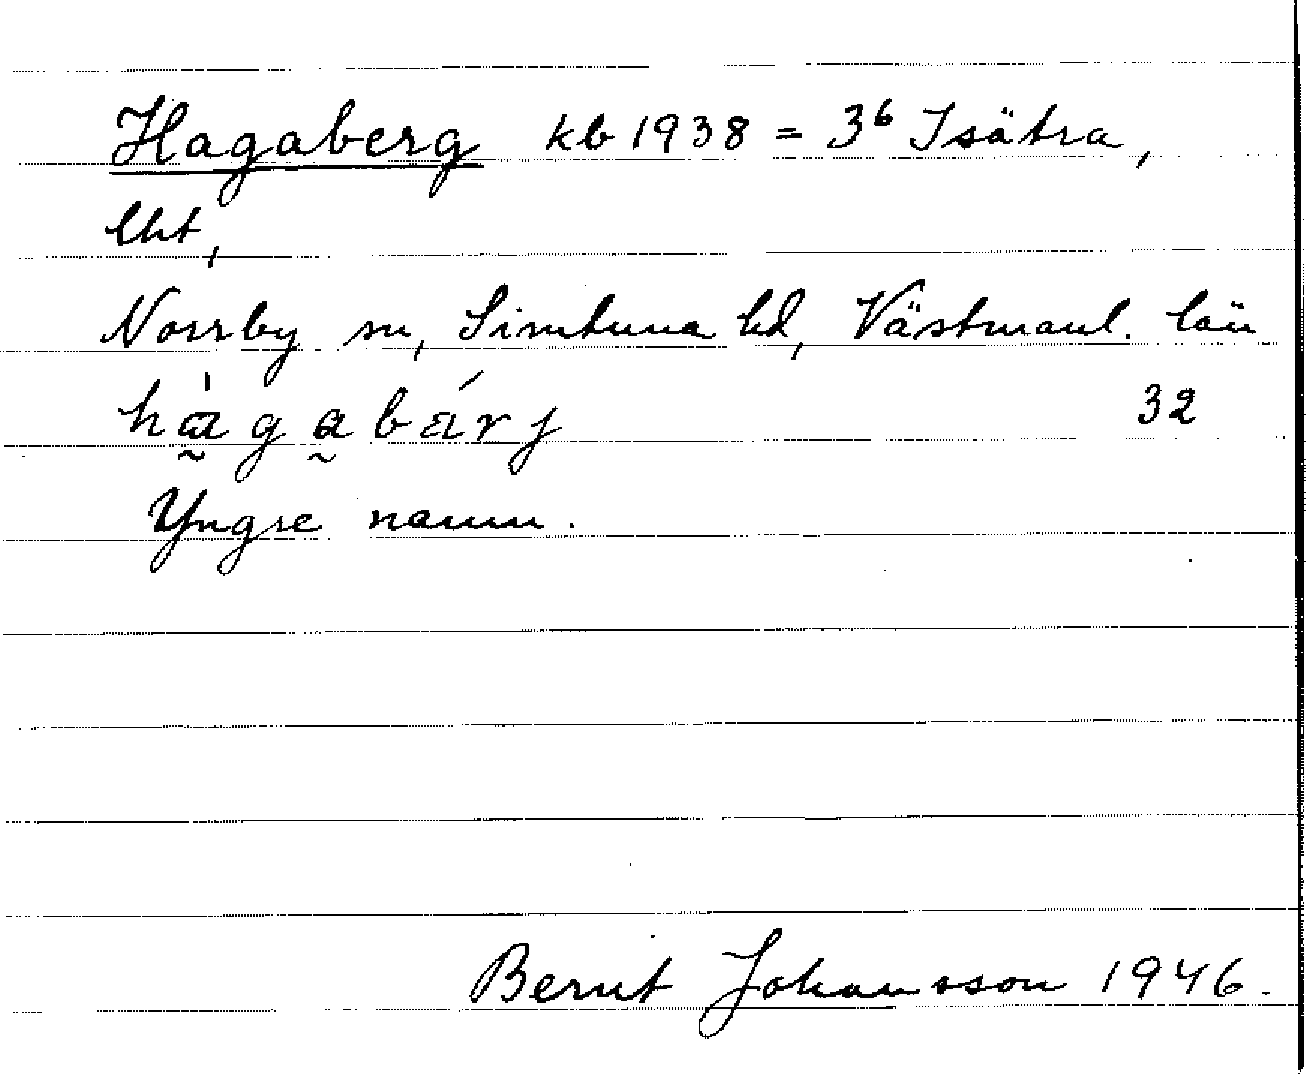 Hagaberg kb 1938 = 3⁶ Isätra,
lht,
Norrby sn, Simtuna hd, Västmanl. län
hàgabárj 32
Yngre namn.
Bernt Johansson 1946.